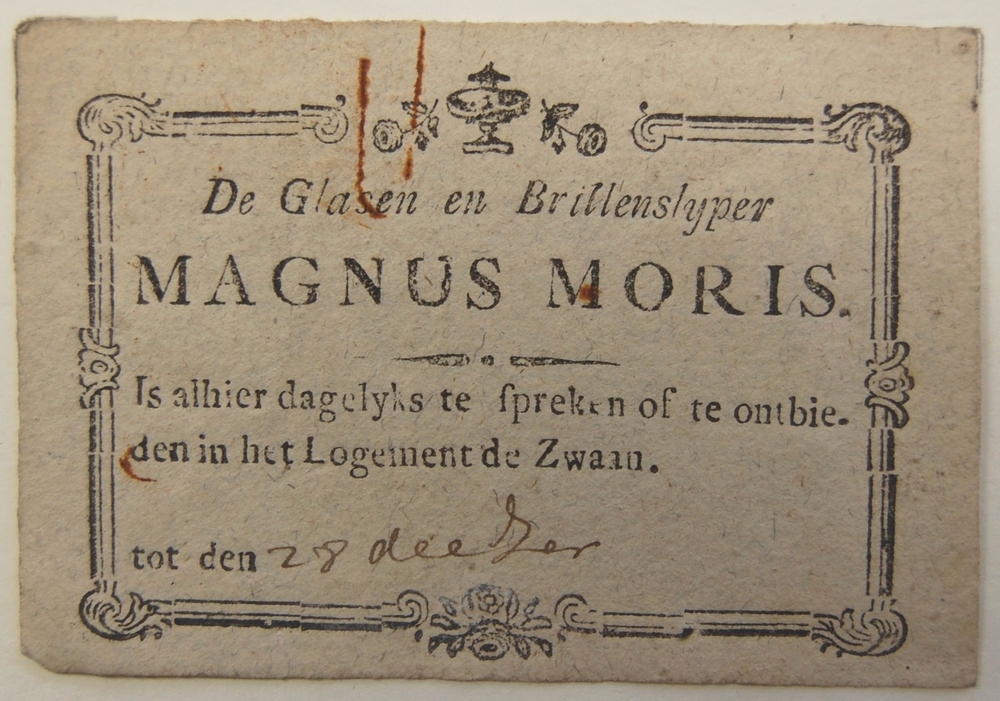 De Glasen en Brillenslyper
MAGNUS MORIS.
Is alhier dagelyks te ſpreken of te ontbie-
den in het Logement de Zwaan.
tot den 28 deeBer